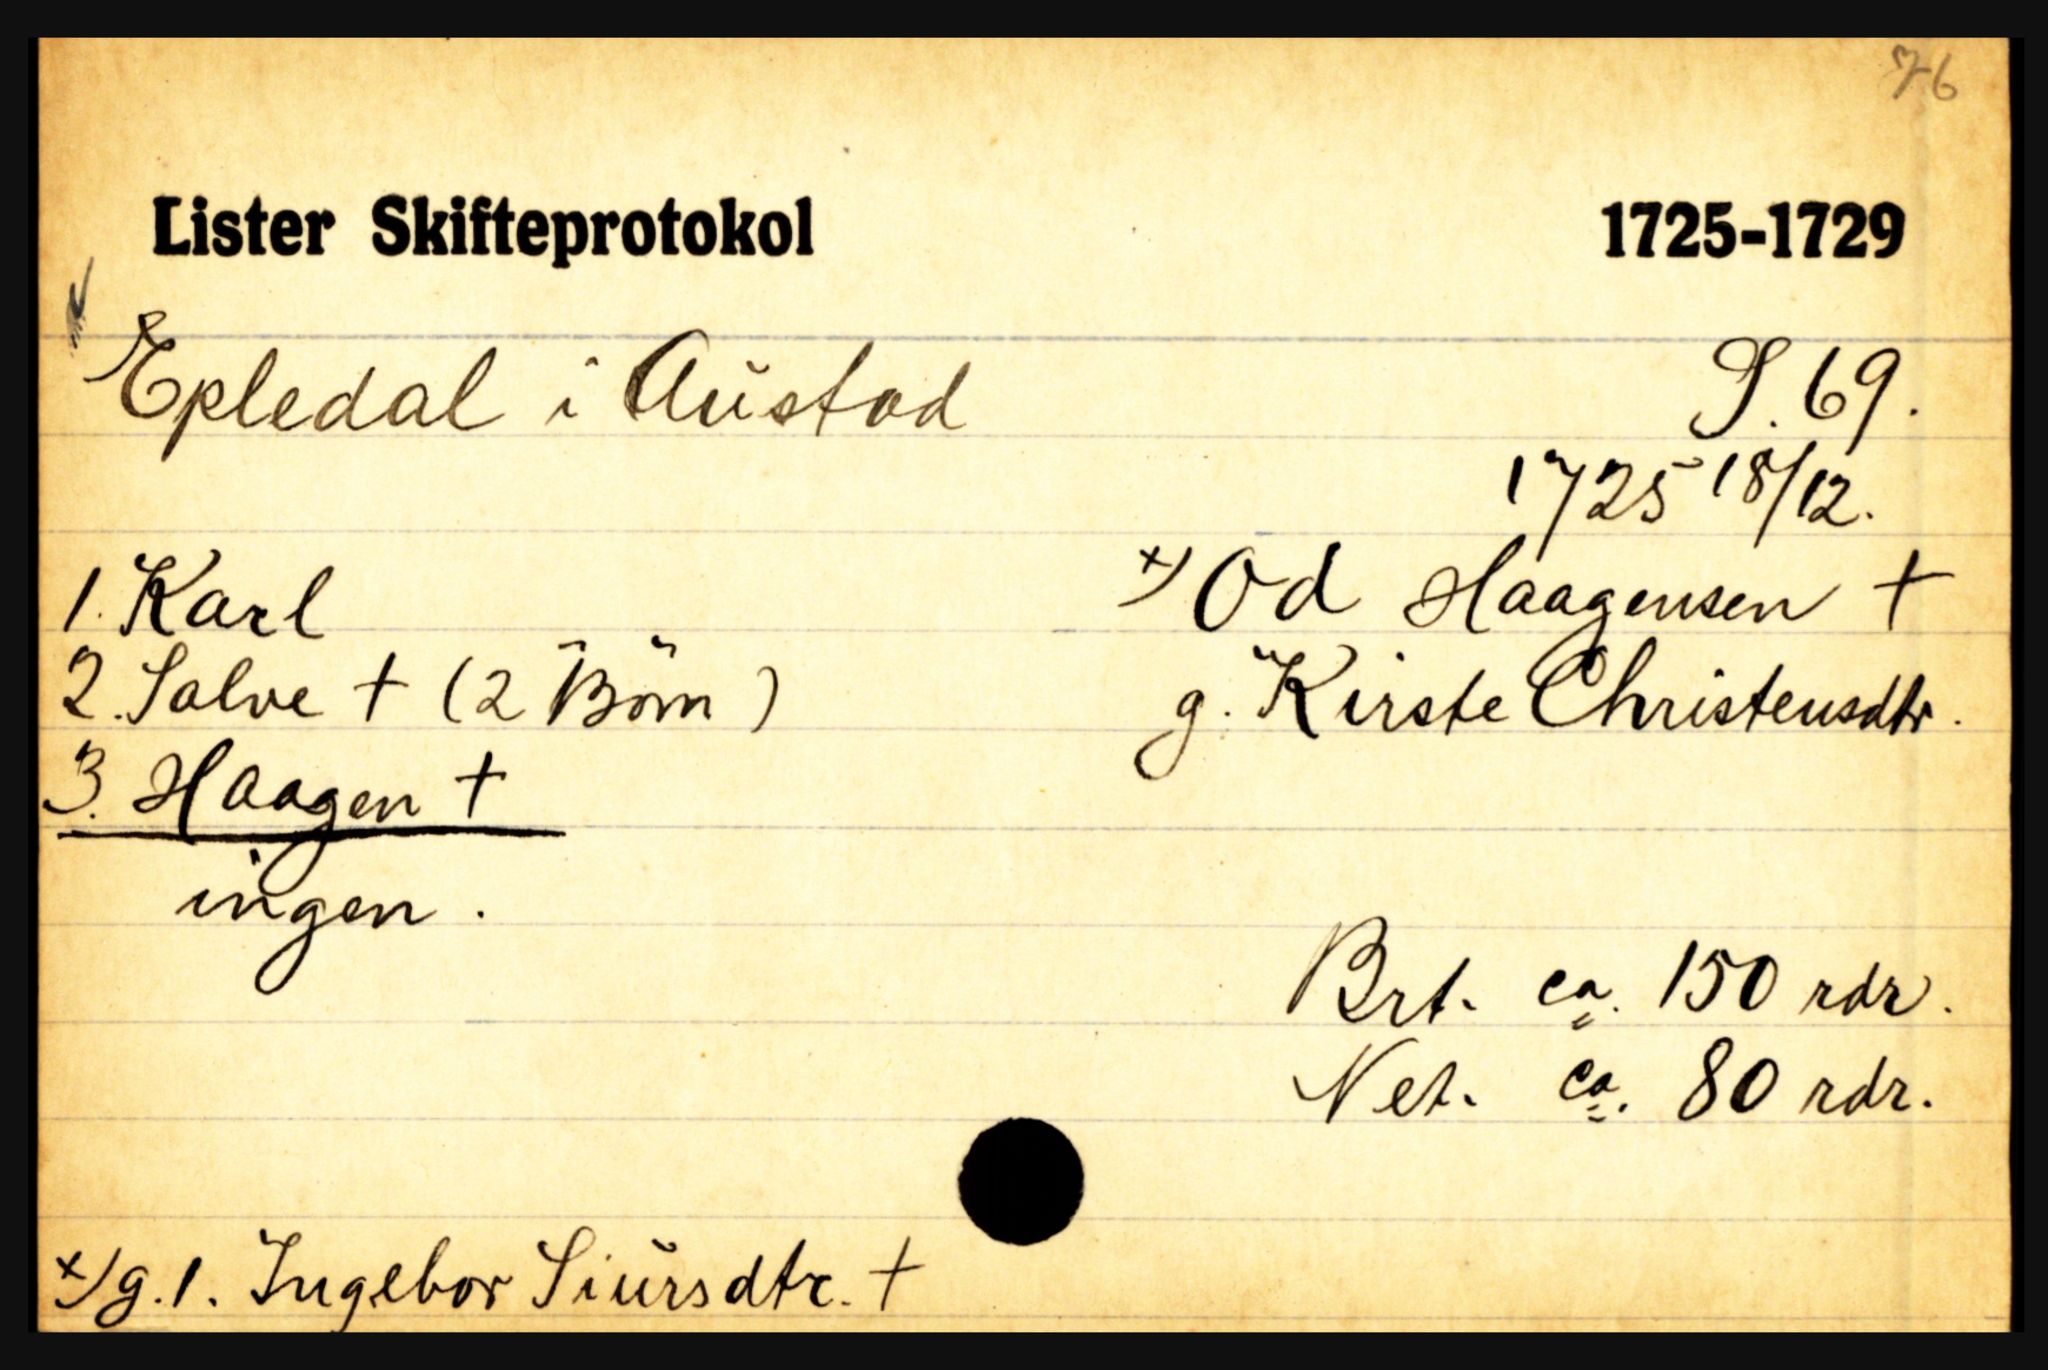 76
Lister Skifteprotokol 1725-1729
Epledal i Austad S. 69.
1725 18/12.
1. Karl x) Od Haagensen †
2. Salve † (2 Börn) g. Kirste Christensdtr.
3. Haagen †
ingen.
Brt. ca. 150 rdr.
Net. ca. 80 rdr.
x) g. 1. Ingebor Siursdtr. †